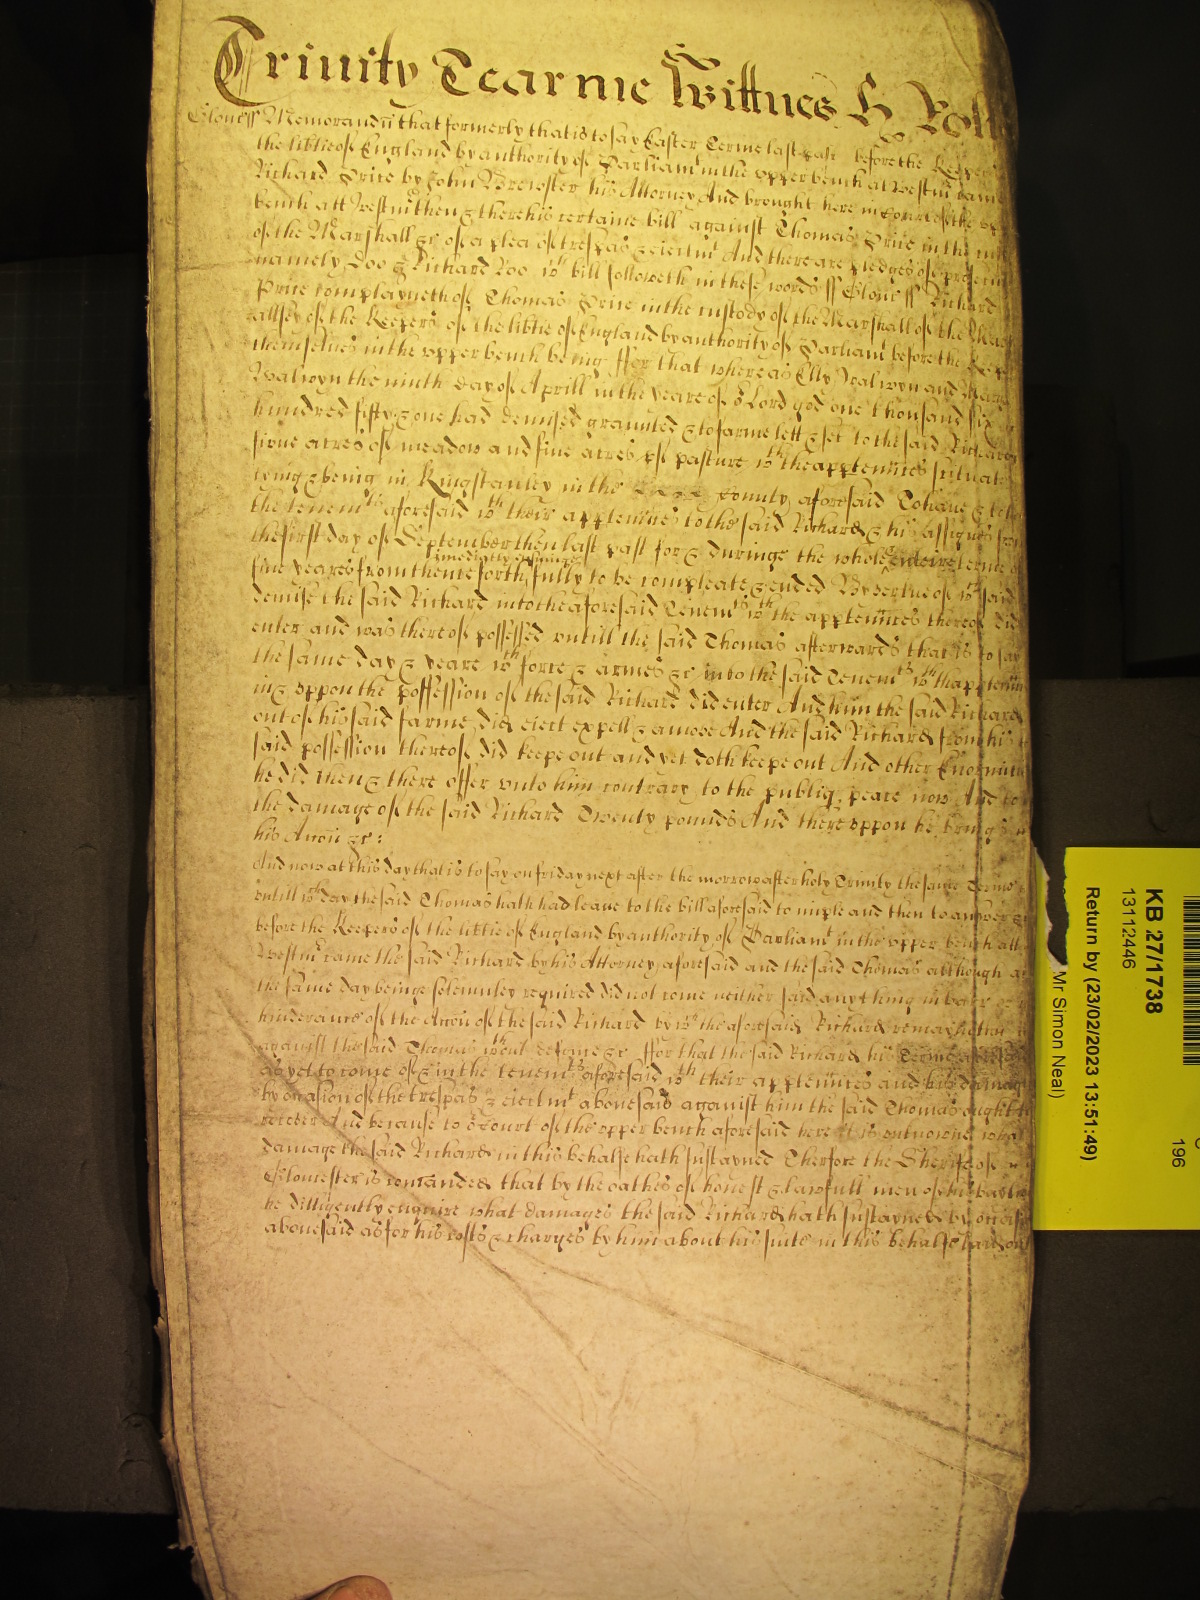 Trinity Tearme Wittnes H Roll
Glouc ss Memorandu that formerly that is to say Easter Terme last past before the Keepers
the lib'tie of England by authority of Parliamt in the upper bench at Westm came
Richard Price by John Brewster his Attorney And brought here in Court of the
bench att Westm then & there his certaine bill against Thomas Price in the
of the Marshall &c of a plea of trespas & eiectmt And there are pledges of
namely Doo & Richard Roo wch bill followeth in these words ss Glouc ss Richard
Price complayneth of Thomas Price in the custody of the Marshall of the
of the Keepers of the lib'tie of England by authority of Parliamt before the
themselves in the upper bench being ffor that whereas Elly Walwyn and
Walwyn the ninth day of Aprill in the yeare of or Lord god one thousand six
hundred fifty & one had demised graunted & to farme lett & set to the said Richard
five acres of meadow and five acres of pasture wth the apptenncs scituat
lying & being in Kingstanley in the county aforesaid To haue &
the tenemts aforesaid wth their apptenncs to the said Richard & his assignes from
the first day of September then last past for & duringe the whole & entire terme of
imediatly ensuinge
five yeares from thence forth fully to be compleate & ended By vertue of wch said
demise the said Richard into the aforesaid Tenemts wth the apptenncs thereof did
enter and was thereof possessed untill the said Thomas afterwards that is to say
the same day & yeare wth force & armes &c into the said Tenemts wth thapptenn
in & uppon the possession of the said Richard did enter And him the said Richard
out of his said farme did eiect expell & amove And the said Richard from his
said possession thereof did keepe out and yet doth keepe out And other Enormities
he did then & there offer unto him contrary to the publiq peace now And to
the damage of the said Richard Twenty pounds And thereuppon he brings
his Accon &c:
And now at this day that is to say on friday next after the morrow after holy Trinity the same Terme
untill wch day the said Thomas hath had leave to the bill aforesaid to imple and then to answer &c
before the Keepers of the lib'tie of England by authority of Parliamt in the upper bench att
Westm came the said Richard by his Attorney aforesaid and the said Thomas although at
the same day beinge solemnley required did not come neither said any thing in barr or
hinderance of the Accon of the said Richard by wch the aforesaid Richard remayneth
against the said Thomas wthout defence &c ffor that the said Richard his Terme aforesaid
as yet to come of & in the tenemts aforesaid wth their apptenncs and his damages
by occasion of the trespas & eiectmt abovesaid against him the said Thomas ought to
recover And because to or Court of the upper bench aforesaid here it is unknowne what
damage the said Richard in this behalfe hath sustayned Therfore the Sheriffe of
Gloucester is comanded that by the oathes of honest & lawfull men of his Bayliw
he dilligently enquire what damages the said Richard hath sustayned by occasion
abovesaid as for his costs & charges by him about his suite in this behalfe laid out
KB 27/1738
13112446
Return by (23/02/2023 13:51:49)
Mr Simon Neal)
196